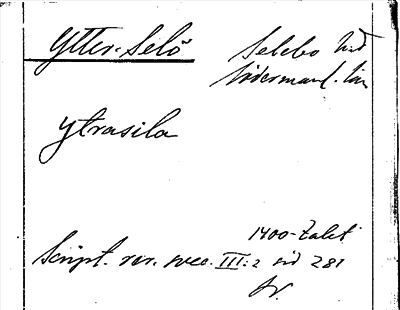 Ytter-Selö
Selebo hd
Södermanl. län
Ytrasila
1400-talet
Script. rer. svec. III:2 sid 281